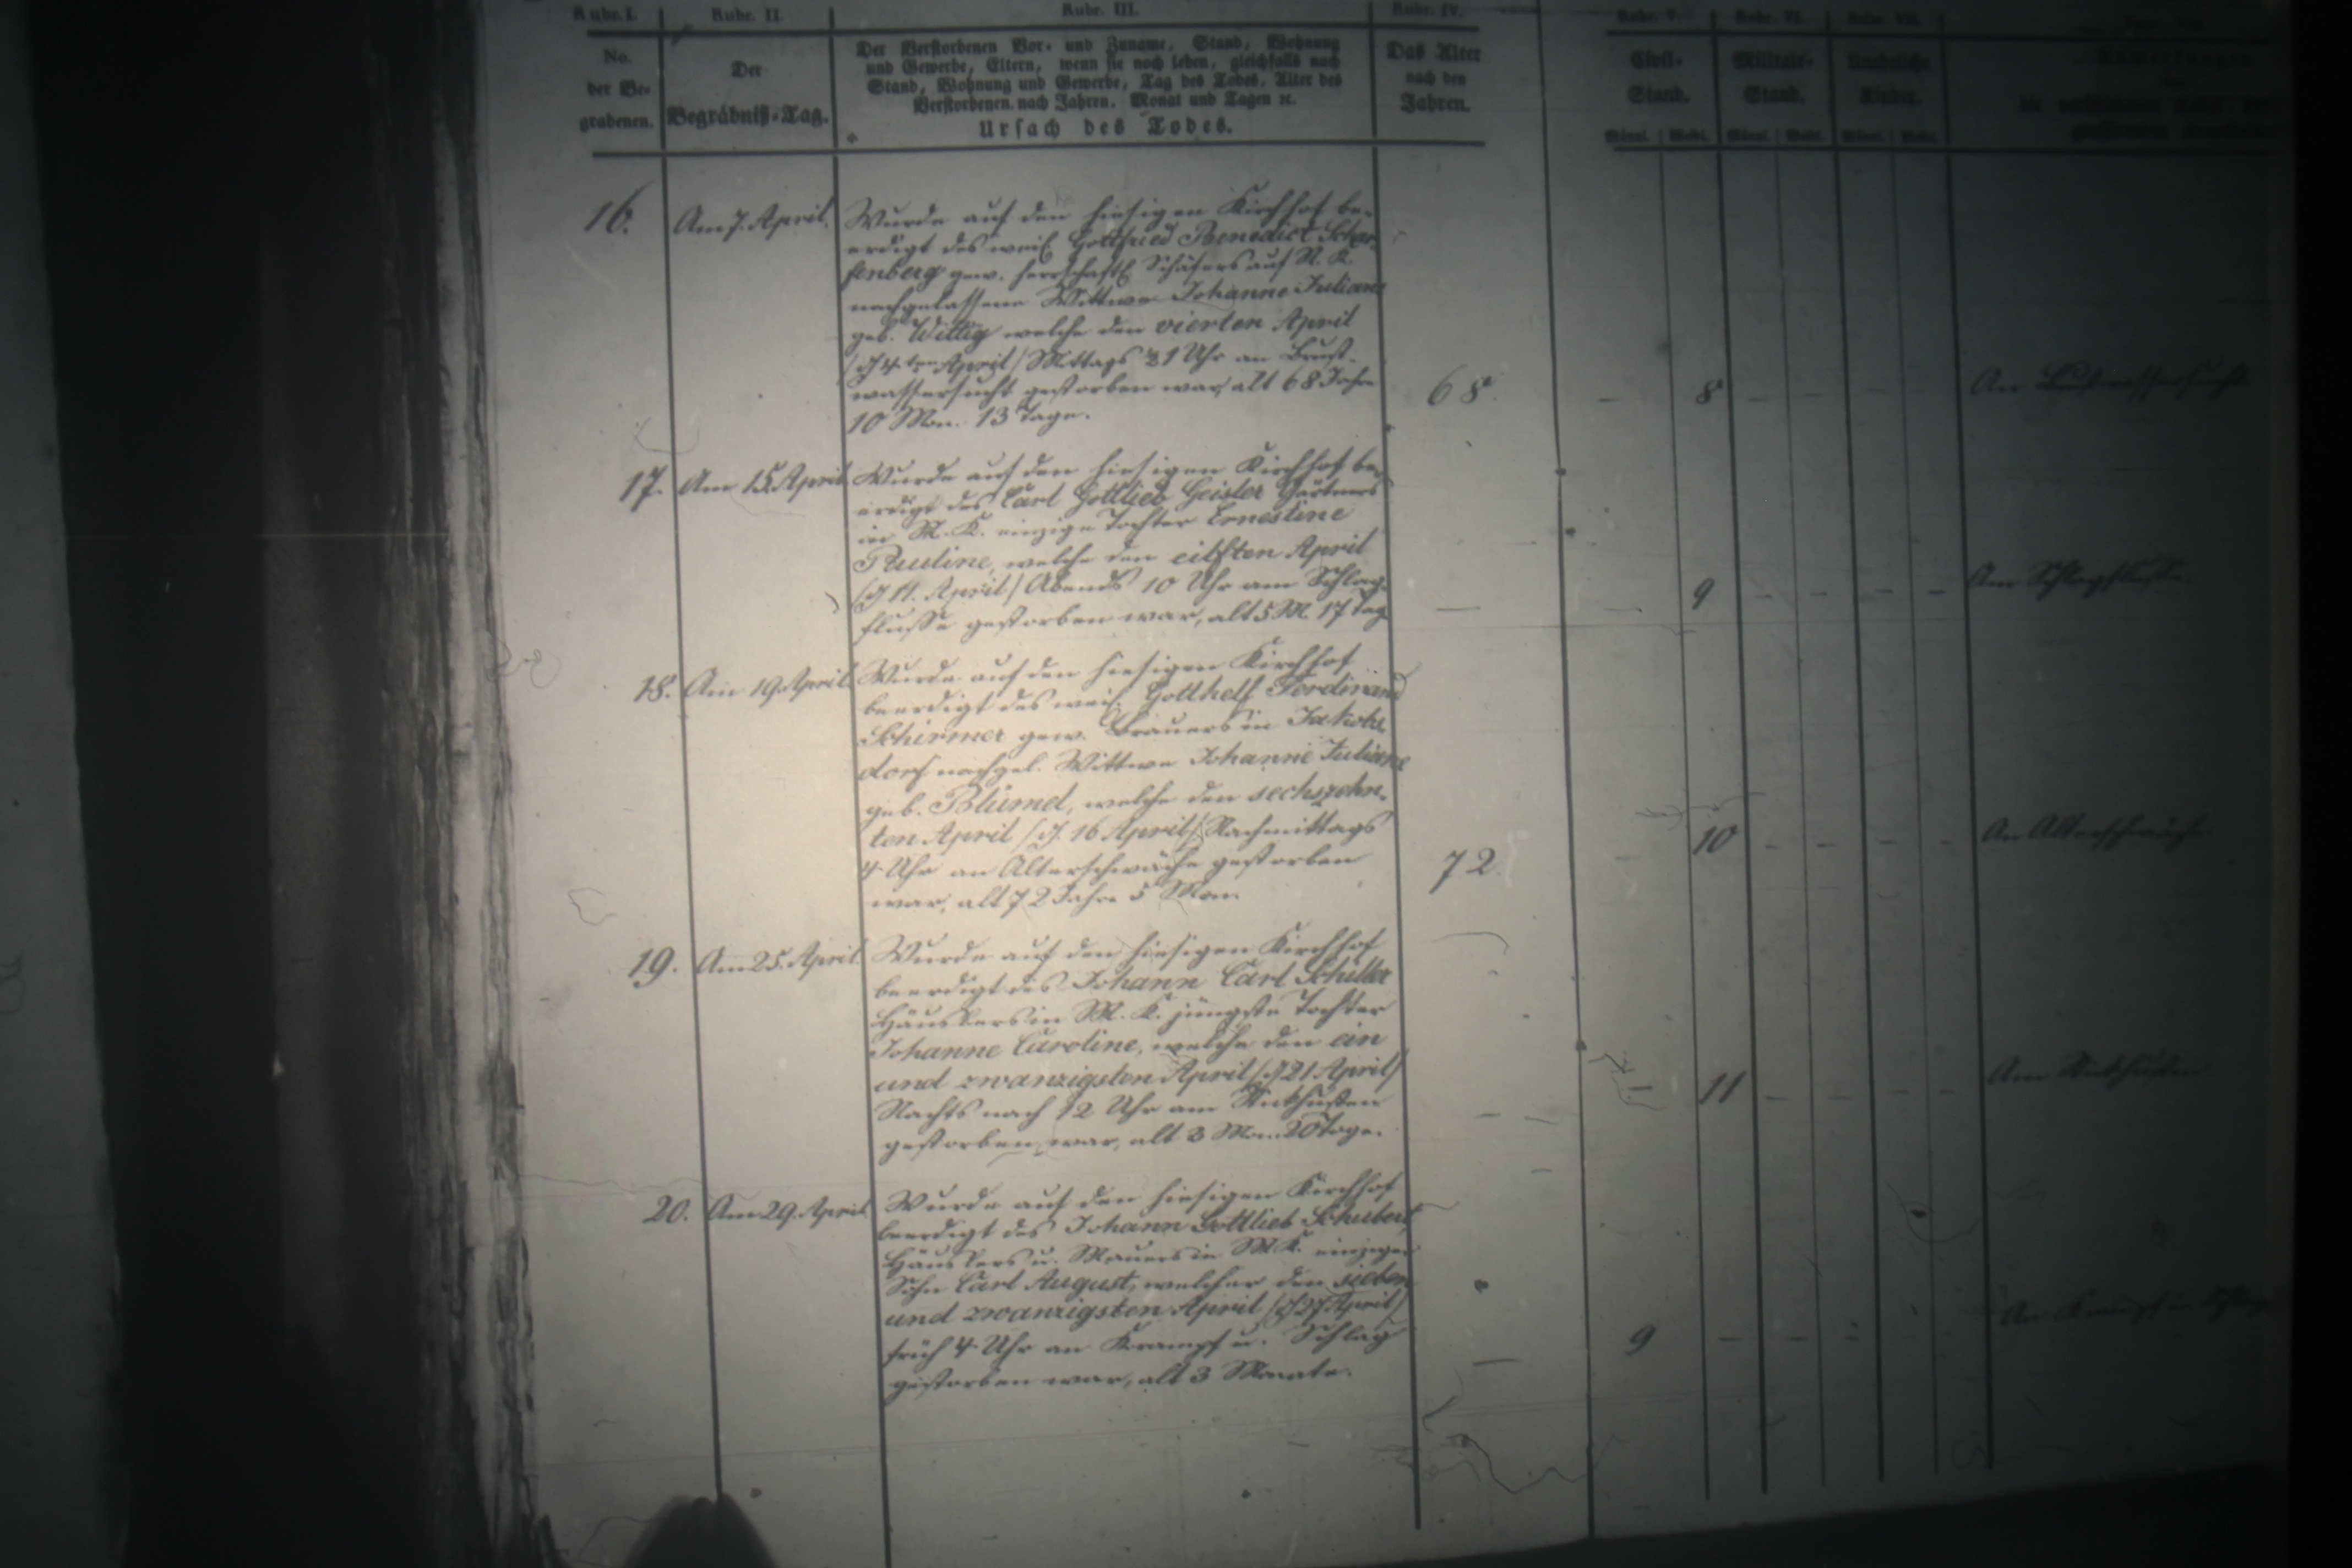 Rubr. I. Rubr. II. Rubr. III. Rubr. IV. Rubr. V. Rubr. VI. Rubr. VII.
No. der Begrabenen.
Der Begräbniß-Tag.
Der Verstorbenen Vor- und Zuname, Stand, Wohnung
und Gewerbe, Eltern, wenn sie noch leben, gleichfalls nach
Stand, Wohnung und Gewerbe, Tag des Todes, Alter des
Verstorbenen nach Jahren, Monat und Tagen ꝛc.
Ursach des Todes.
Das Alter
nach den
Jahren.
Civil-
Stand.
Militair-
Stand.
Uneheliche
Kinder.
Männl. Weibl. Männl. Weibl. Männl. Weibl.
16. Am 7. April. Wurde auf den hiesigen Kirchhof be-
erdigt des weil. Gottfried Benedict Schar-
fenberg gew. herrschaftl. Schäfers auf N. K.
nachgelassene Wittwe Johanne Juliane
geb. Wittig welche den vierten April
/: d 4ten April / Mittags 1 Uhr an Brust-
wassersucht gestorben war, alt 68 Jahre
10 Mon. 13 Tage.
68. – 8 – – – –
17. Am 15. April. Wurde auf den hiesigen Kirchhof be-
erdigt des Carl Gottlieb Geisler Gärtners
in M. K. einzige Tochter Ernestine
Pauline, welche den eilften April
/ d 11. April / Abends 10 Uhr am Schlag-
flusse gestorben war, alt 5 M. 17 Tag
— – 9 – – – – Am Schlagflusse.
18. Am 19. April. Wurde auf den hiesigen Kirchhof
beerdigt des weil. Gotthelf Ferdinand
Schirmer gew. Brauers in Jakobs
dorf nachgel. Wittwe Johanne Juliane
geb. Blümel, welche den sechszehn-
ten April / d. 16 April / Nachmittags
4 Uhr an Alterschwäche gestorben
war, alt 72 Jahre 5 Mon.
72. – 10 – – – – An Alterschwäche.
19. Am 25. April. Wurde auf den hiesigen Kirchhof
beerdigt des Johann Carl Schiller
Häuslers in M. K. jüngste Tochter
Johanne Caroline, welche den ein
und zwanzigsten April / d 21 April /
Nachts nach 12 Uhr am Stickhusten
gestorben war, alt 3 Mon. 20 Tage.
— – 11 – – – – Am Stickhusten
20. Am 29. April. Wurde auf den hiesigen Kirchhof
beerdigt des Johann Gottlieb Schubert,
Häuslers u. Mauers in M K. einziger
Sohn Carl August, welcher den sieben
und zwanzigsten April / d 27 April /
früh 4 Uhr an Krampf u. Schlag
gestorben war, alt 3 Monate.
— 9 – – – An Krampf u. Schlag